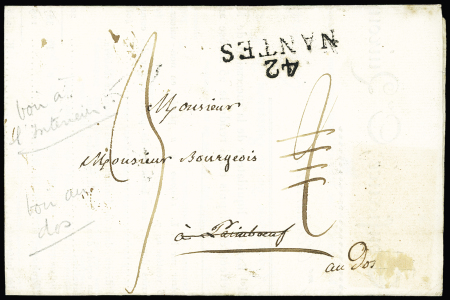 42
NANTES
bon à
l'Intérieur
Monsieur
Monsieur Bourgeois
bon au
dos
à Paimboeuf
au Dos